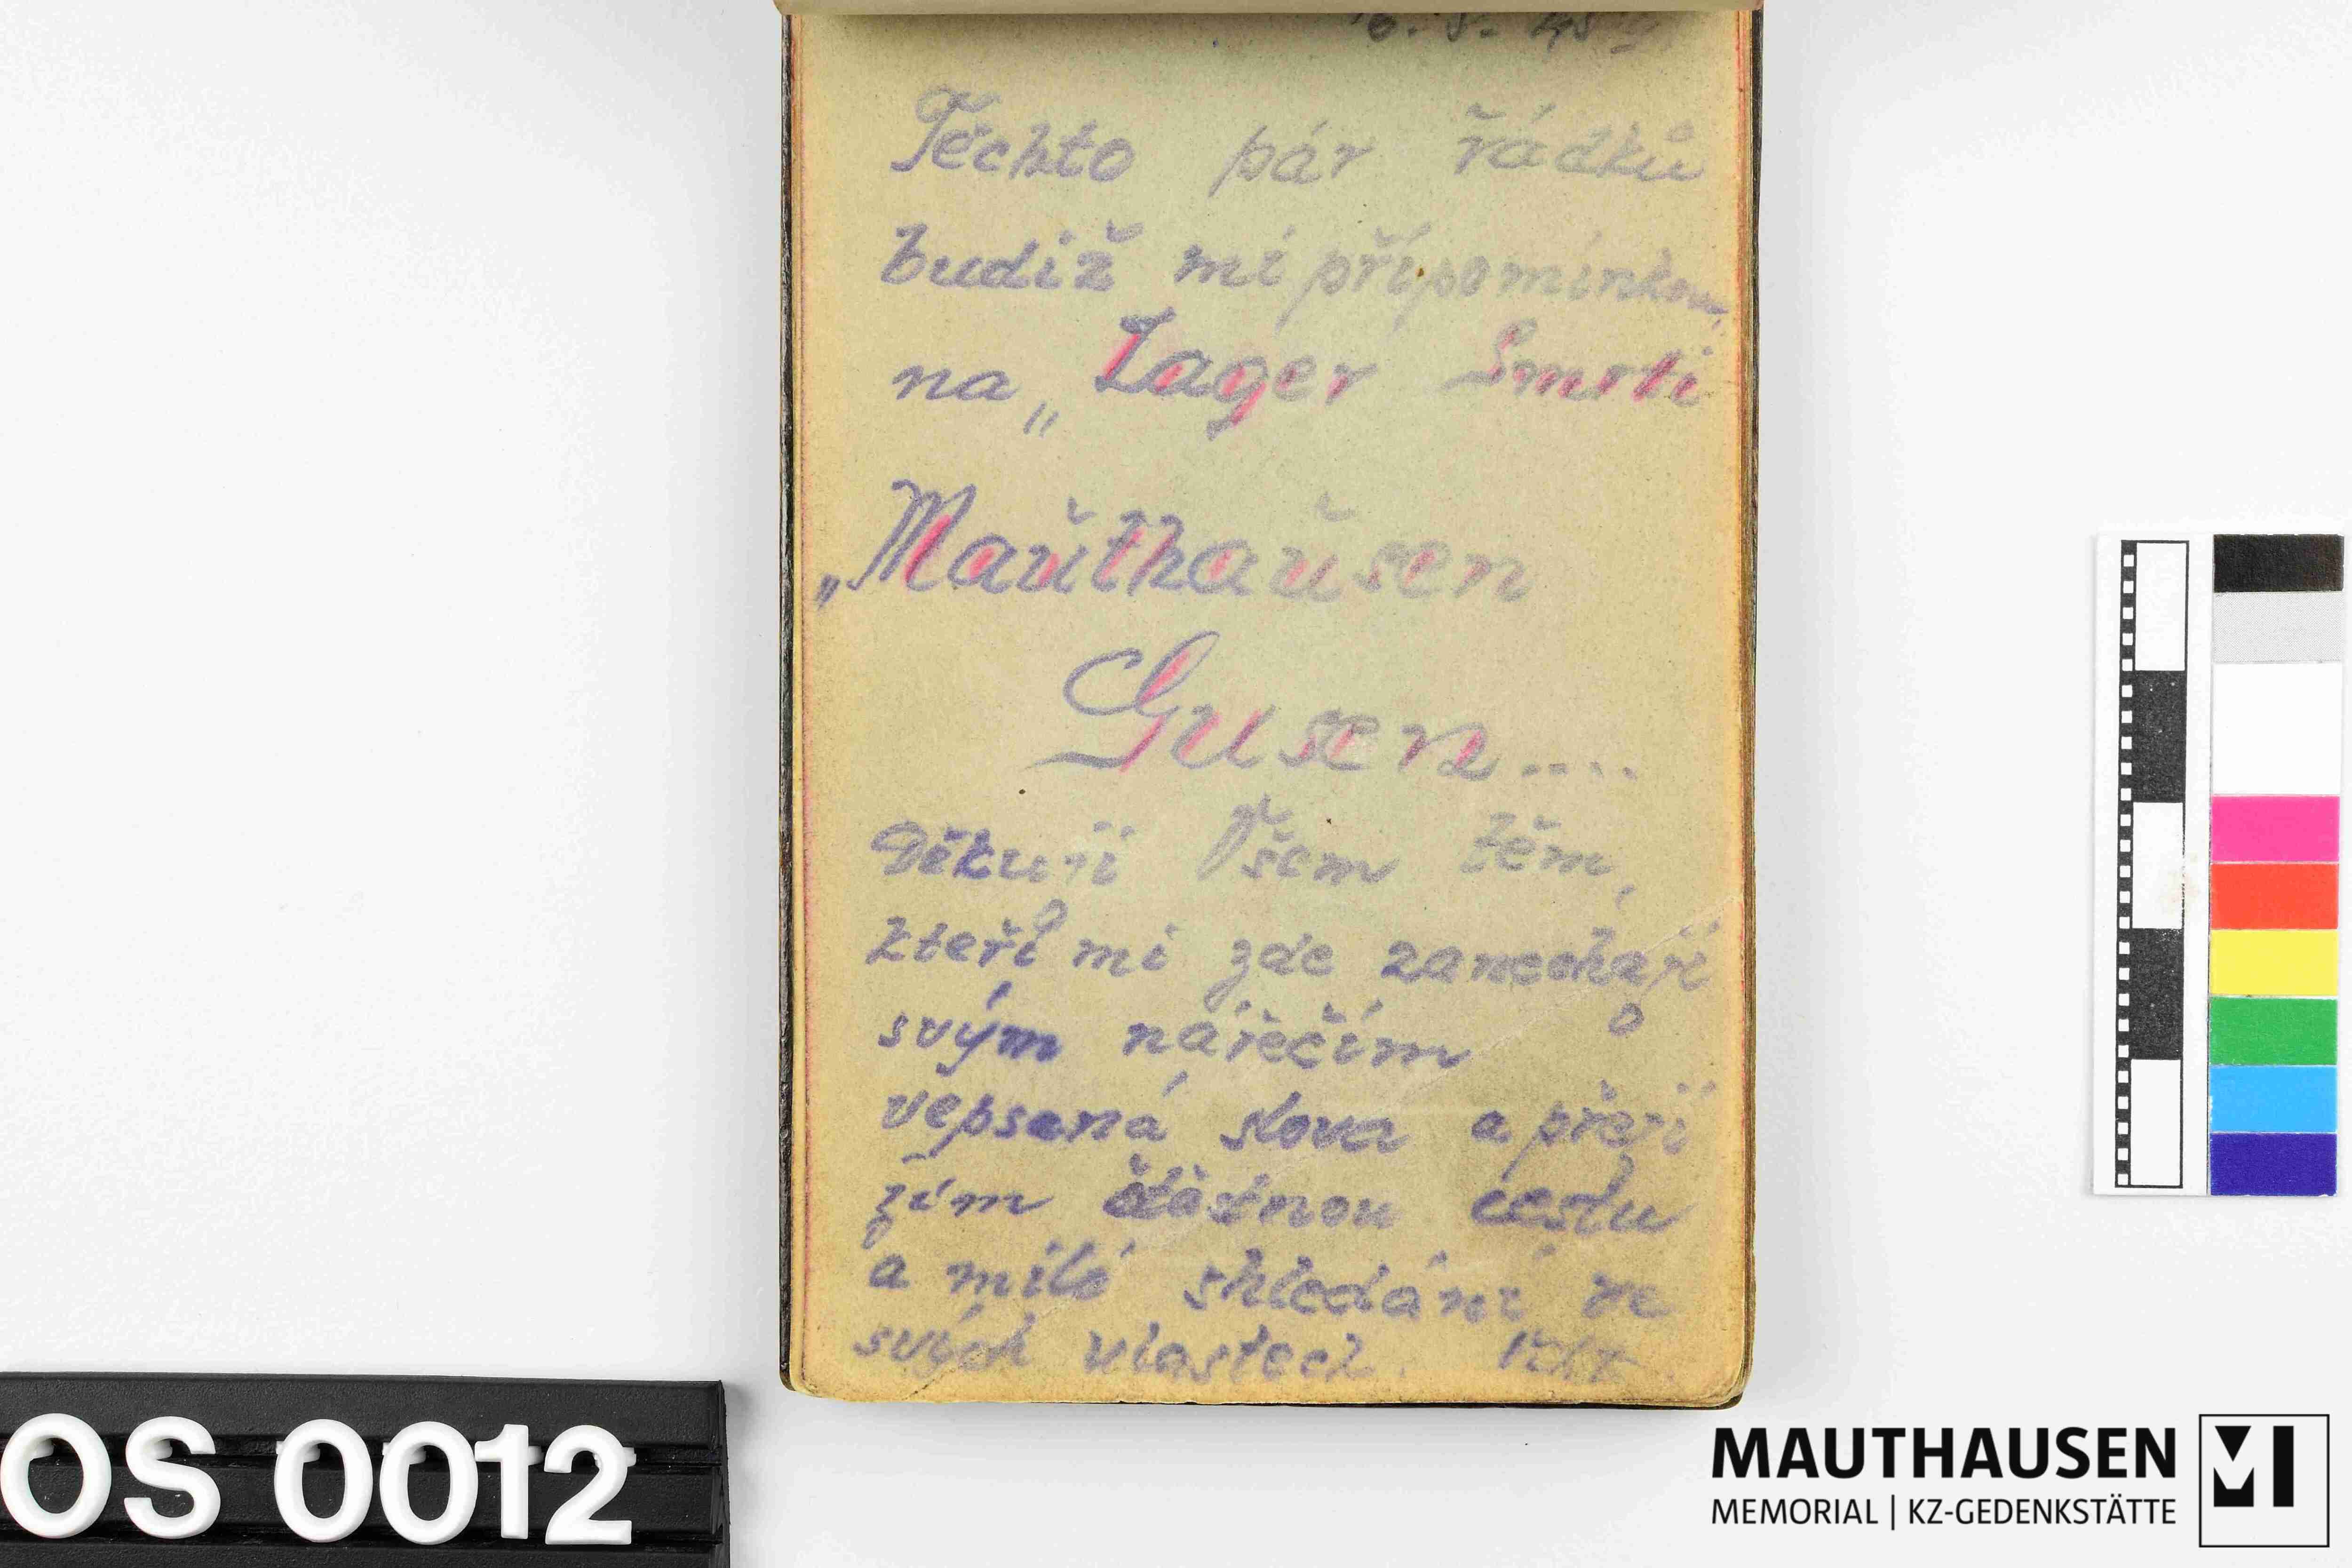 6. 5. 45
Těchto pár řádků
budiž mi připomínkou
na „Lager Smrti
„Maŭthaŭsen
Gusen....
Děkuji Všem těm,
kteří mi zde zanechají
svým nářečím
vepsaná slova a přeji
jím šťastnou cestu
a milé shledání ve
svých vlastech.
OS 0012
MAUTHAUSEN
MEMORIAL | KZ-GEDENKSTÄTTE